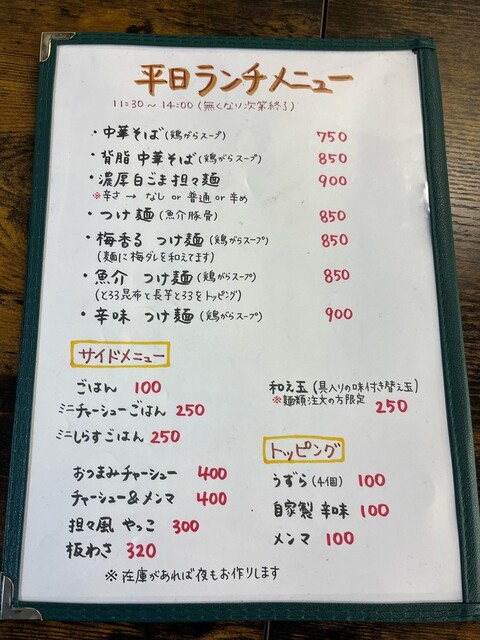 平日ランチメニュー
11:30～14:00(無くなり次第終了)
・中華そば(鶏がらスープ) 750
・背脂 中華そば(鶏がらスープ) 850
・濃厚白ごま担々麺 900
※辛さ→ なし or 普通 or 辛め
・つけ麺(魚介豚骨) 850
・梅香る つけ麺(鶏がらスープ) 850
(麺に梅ダレを和えてます)
・魚介 つけ麺(鶏がらスープ) 850
(とろろ昆布と長芋とろろをトッピング)
・辛味 つけ麺(鶏がらスープ) 900
サイドメニュー
ごはん 100
ミニチャーシューごはん 250
ミニしらすごはん 250
おつまみチャーシュー 400
チャーシュー&メンマ 400
担々風 やっこ 300
板わさ 320
和え玉(具入りの味付き替え玉)
※麺類注文の方限定 250
トッピング
うずら(4個) 100
自家製 辛味 100
メンマ 100
※在庫があれば夜もお作りします